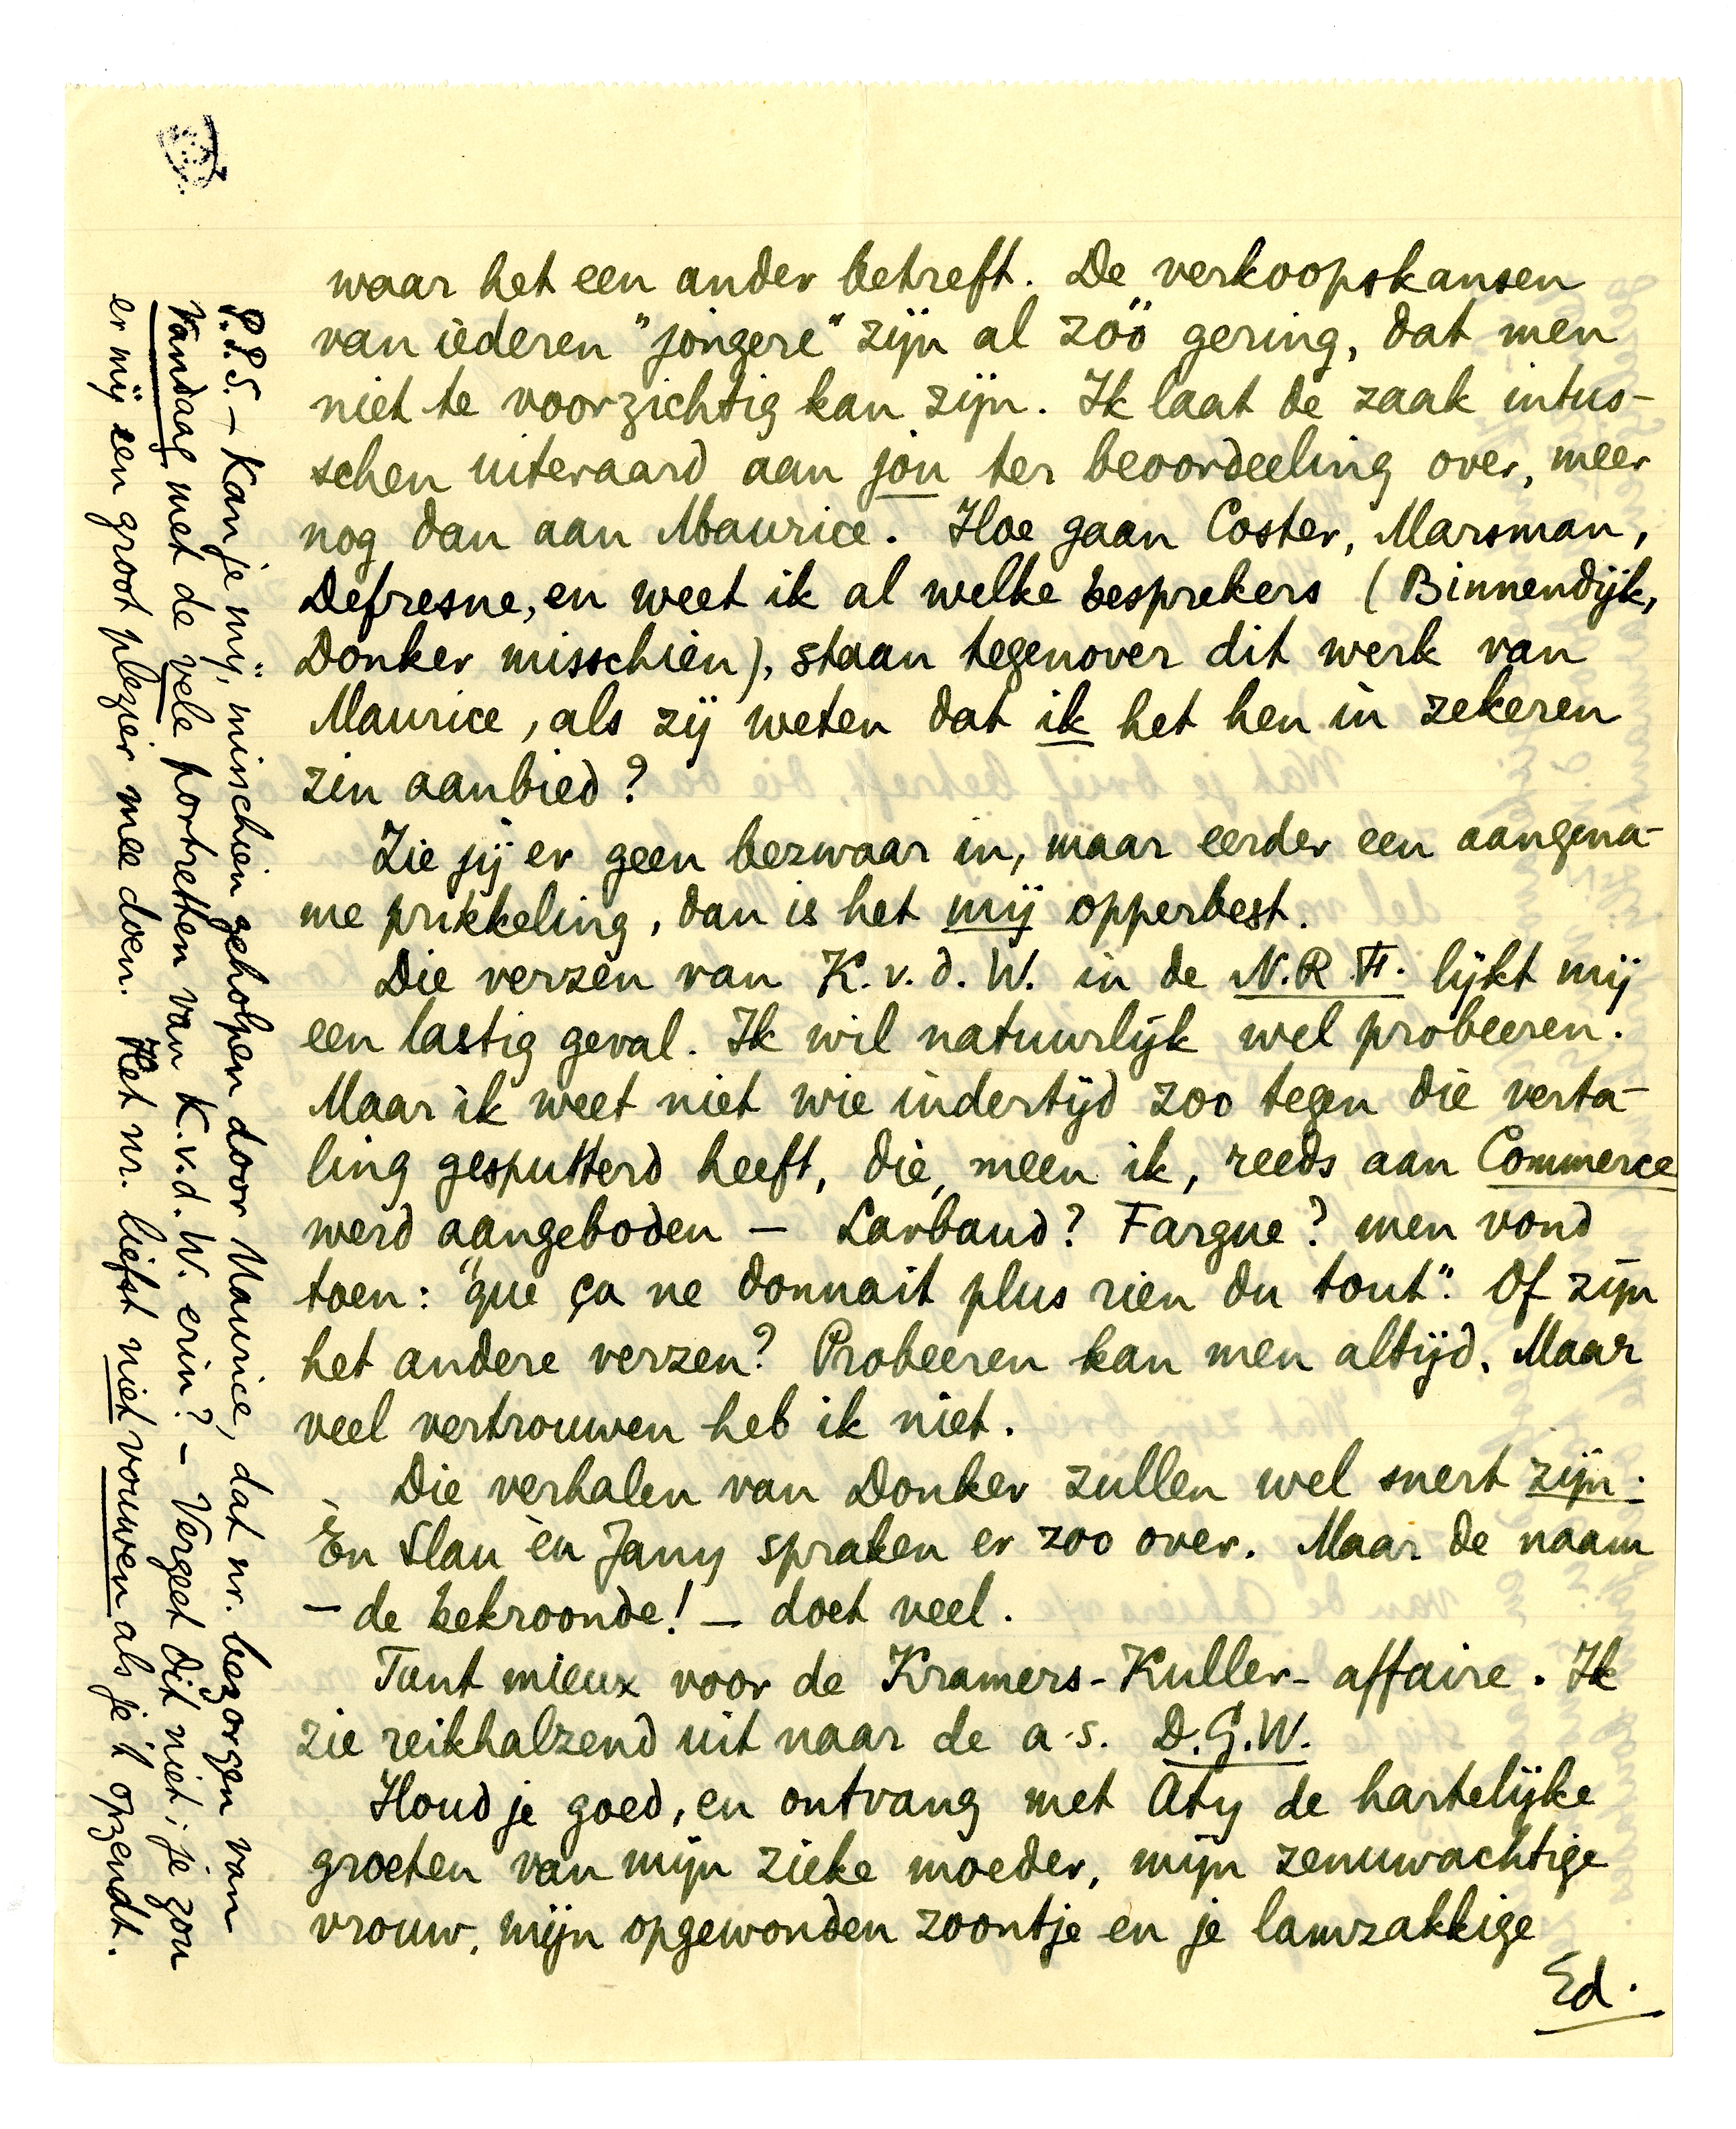 waar het een ander betreft. De verkoopskansen
van iederen "jongere" zijn al zóó gering, dat men
niet te voorzichtig kan zijn. Ik laat de zaak intus-
schen uiteraard aan jou ter beoordeeling over, meer
nog dan aan Maurice. Hoe gaan Coster, Marsman,
Defresne, en weet ik al welke besprekers (Binnendijk,
Donker misschien), staan tegenover dit werk van
Maurice, als zij weten dat ik het hen in zekeren
zin aanbied?
Zie jij er geen bezwaar in, maar eerder een aangena-
me prikkeling, dan is het mij opperbest.
Die verzen van K. v. d. W. in de N.R.F. lijkt mij
een lastig geval. Ik wil natuurlijk wel probeeren.
Maar ik weet niet wie indertijd zoo tegen die verta-
ling gesputterd heeft, die, meen ik, reeds aan Commerce
werd aangeboden — Larbaud? Fargue? men vond
toen: "que ça ne donnait plus rien du tout". Of zijn
het andere verzen? Probeeren kan men altijd. Maar
veel vertrouwen heb ik niet.
Die verhalen van Donker zullen wel snert zijn.
Èn Slau èn Jany spraken er zoo over. Maar de naam
— de bekroonde! — doet veel.
Tant mieux voor de Kramers-Kuller-affaire. Ik
zie reikhalzend uit naar de a.s. D.G.W.
Houd je goed, en ontvang met Aty de hartelijke
groeten van mijn zieke moeder, mijn zenuwachtige
vrouw, mijn opgewonden zoontje en je lamzakkige
Ed.
P.P.S. — Kan je mij, misschien geholpen door Maurice, dat nr. bezorgen van
Vandaag met de vele portretten van K.v.d.W. erin? — Vergeet dit niet; je zou
er mij een groot plezier mee doen. Het nr. liefst niet vouwen als je 't opzendt.